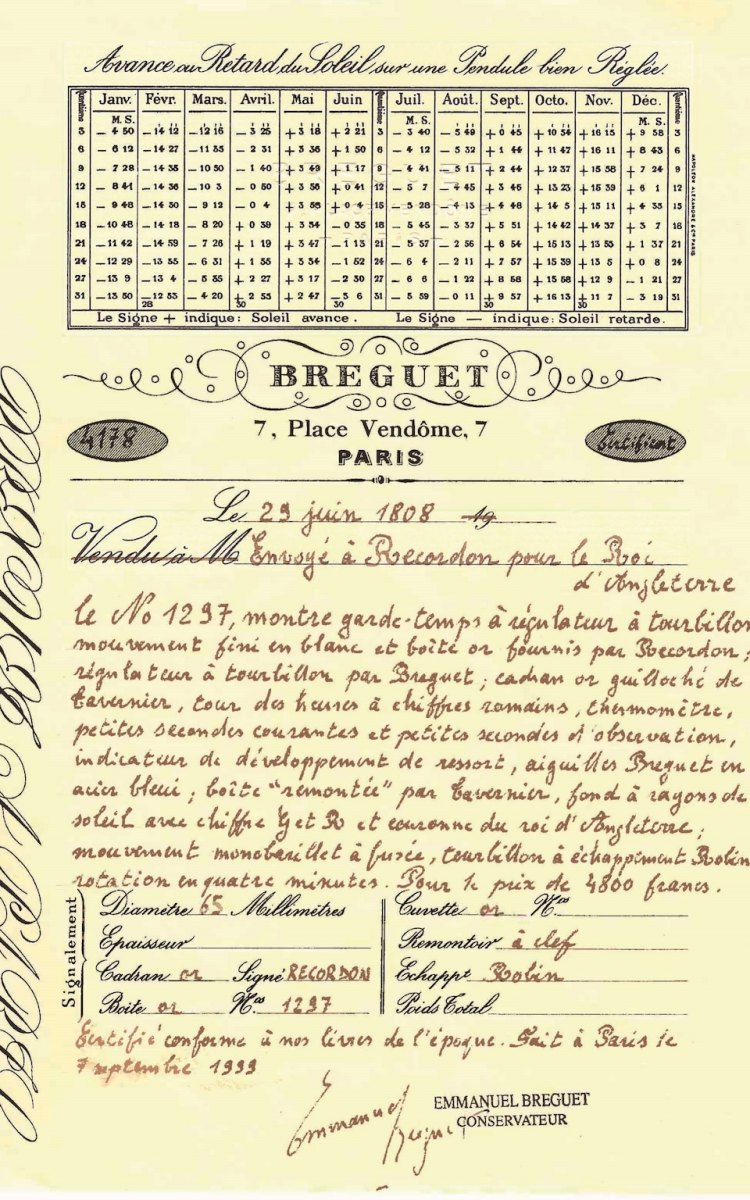 Avance ou Retard du Soleil sur une Pendule bien Réglée.
Quantième Janv. Févr. Mars. Avril. Mai Juin Quantième Juil. Août. Sept. Octo. Nov. Déc. Quantième
M. S. M. S. M. S. M. S.
3 — 4 50 — 14 12 — 12 16 — 3 25 + 3 18 + 2 21 3 — 3 40 — 5 49 + 0 45 + 10 54 + 16 15 + 9 58 3
6 — 6 12 — 14 27 — 11 35 — 2 31 + 3 36 + 1 50 6 — 4 12 — 5 32 + 1 44 + 11 47 + 16 11 + 8 43 6
9 — 7 28 — 14 35 — 10 50 — 1 40 + 3 49 + 1 17 9 — 4 41 — 5 11 + 2 44 + 12 37 + 15 58 + 7 24 9
12 — 8 41 — 14 36 — 10 3 — 0 50 + 3 56 + 0 41 12 — 5 7 — 4 45 + 3 46 + 13 23 + 15 39 + 6 1 12
15 — 9 48 — 14 30 — 9 12 — 0 4 + 3 58 + 0 4 15 — 5 28 — 4 13 + 4 48 + 14 5 + 15 11 + 4 35 15
18 — 10 48 — 14 18 — 8 20 + 0 39 + 3 54 — 0 35 18 — 5 45 — 3 37 + 5 51 + 14 42 + 14 37 + 3 7 18
21 — 11 42 — 14 59 — 7 26 + 1 19 + 3 47 — 1 13 21 — 5 57 — 2 56 + 6 54 + 15 13 + 13 53 + 1 37 21
24 — 12 29 — 13 35 — 6 31 + 1 55 + 3 34 — 1 52 24 — 6 4 — 2 11 + 7 57 + 15 39 + 13 5 + 0 8 24
27 — 13 9 — 13 4 — 5 35 + 2 27 + 3 17 — 2 30 27 — 6 6 — 1 22 + 8 58 + 15 58 + 12 9 — 1 21 27
31 — 13 50 28 — 12 53 — 4 20 30 + 2 55 + 2 47 30 — 3 6 31 — 5 59 — 0 11 30 + 9 57 + 16 13 30 + 11 7 — 3 19 31
Le Signe + indique: Soleil avance. Le Signe — indique: Soleil retarde.
NAPOLEON ALEXANDRE & Cie PARIS
BREGUET
4178 7, Place Vendôme, 7 Certificat
PARIS
Le 29 juin 1808 19
Vendu à M Envoyé à Recordon pour le Roi
d'Angleterre
le No 1297, montre garde-temps à régulateur à tourbillon
mouvement fini en blanc et boîte or fournis par Recordon ;
régulateur à tourbillon par Breguet ; cadran or guilloché de
Tavernier, tour des heures à chiffres romains, thermomètre,
petites secondes courantes et petites secondes d'observation,
indicateur de développement de ressort, aiguilles Breguet en
acier bleui ; boîte "remontée" par Tavernier, fond à rayons de
soleil avec chiffre G et R et couronne du roi d'Angleterre ;
mouvement monobarillet à fusée, tourbillon à échappement Robin
rotation en quatre minutes. Pour le prix de 4800 francs.
Signalement
Diamètre 65 Millimètres Cuvette or Nos
Epaisseur Remontoir à clef
Cadran or Signé RECORDON Echappt Robin
Boîte or Nos 1297 Poids Total
Certifié conforme à nos livres de l'époque. Fait à Paris le
7 septembre 1999
EMMANUEL BREGUET
CONSERVATEUR
Emmanuel Breguet